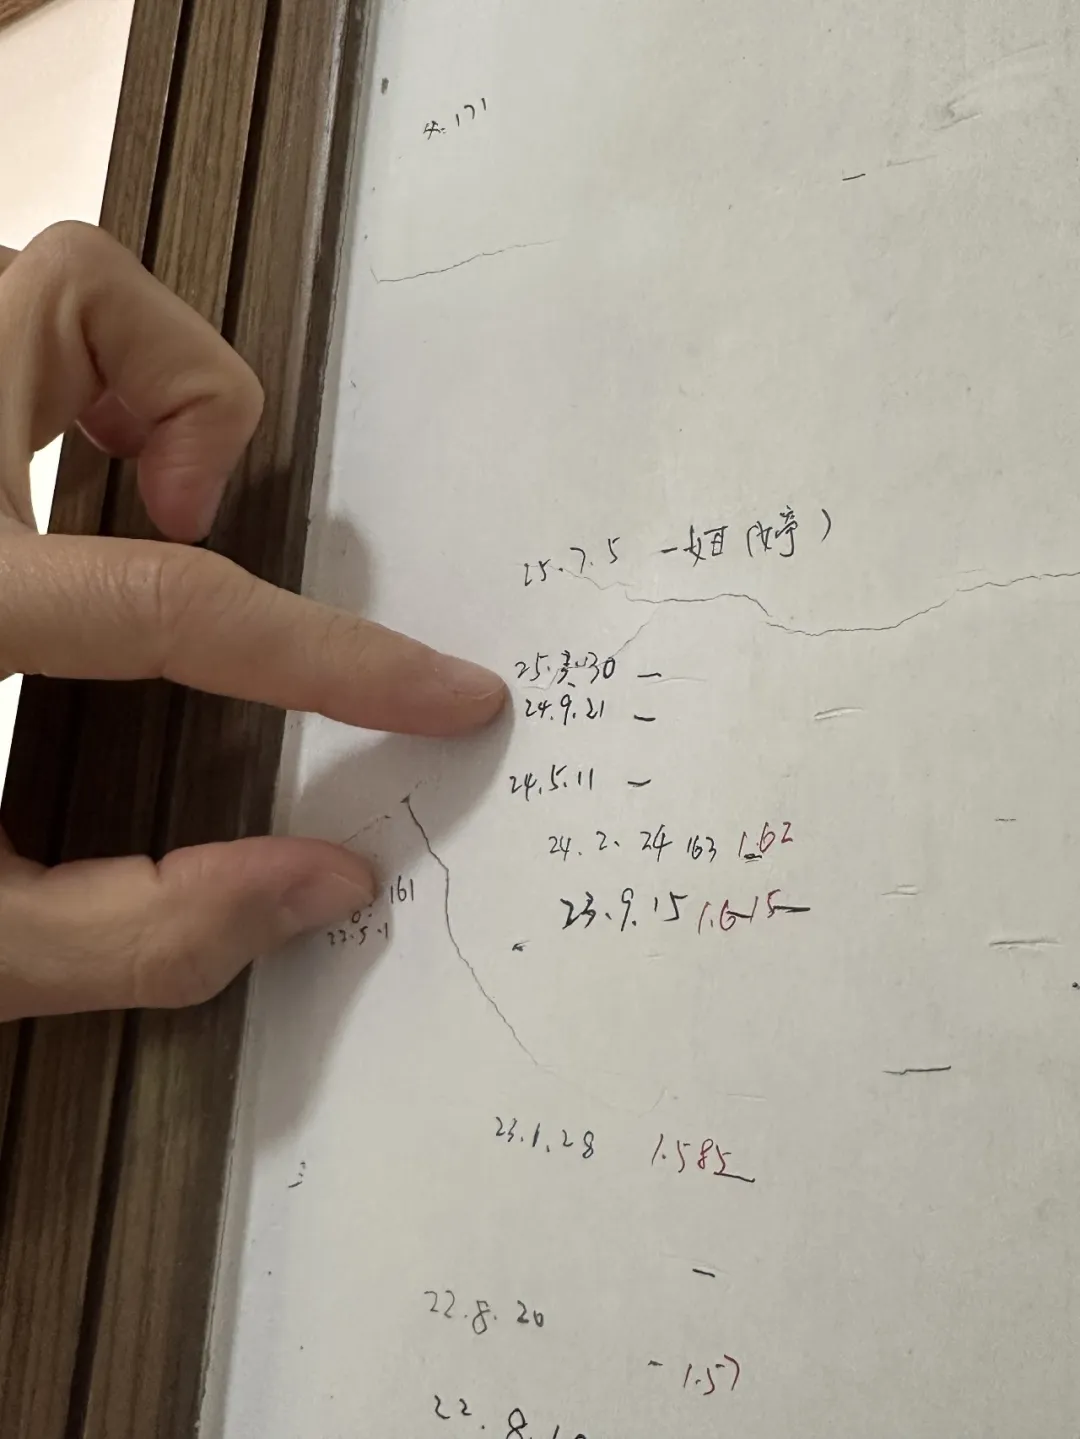 171
25.7.5 一姐(婷)
25. 30 —
24.9.21 —
24.5.11 —
24.2.24 163 1.62
161
23.9.15 1.615
22.5.1
23.1.28 1.585
22.8.20
1.57
22.8.